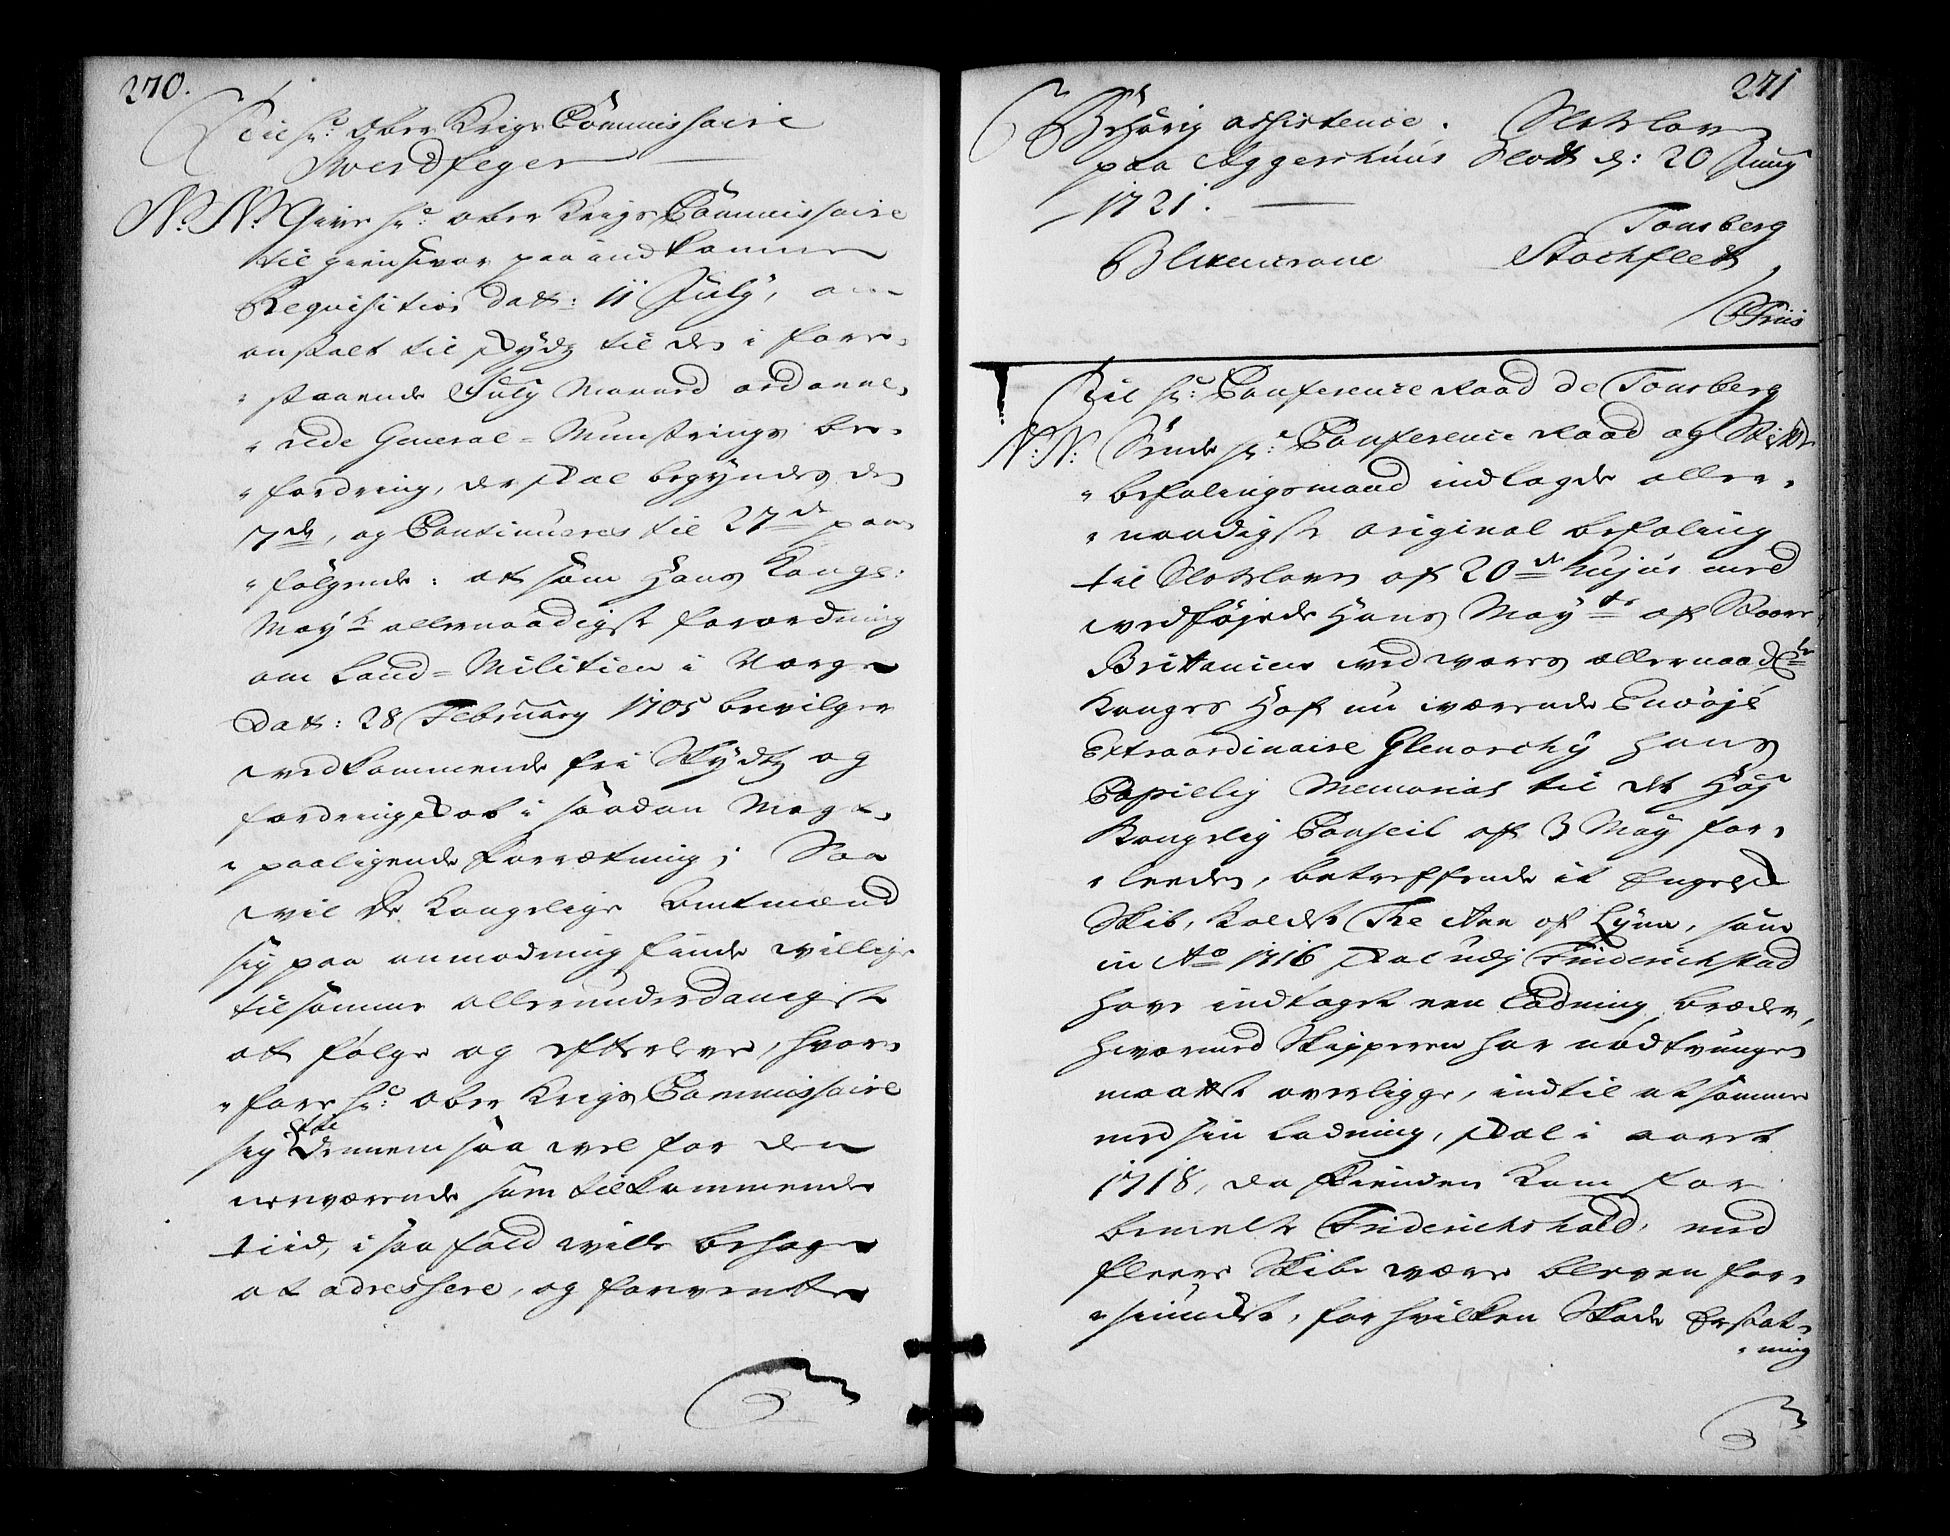 270.
Til hr: Ober Krigs Commissaire
Swerdfeger
N: N: Give hr: ober Krigs Commissaire
til giensvar paa indkomne
Requisition dat: 11 July, om
anstalt til skydz til den i fore-
"staaende July Maaned ordonne-
"rede General-Munstrings be-
"fordring, der skal begyndes den
7de, og Continueres til 27de paa-
"følgende: at som Hans Kongl:
Mayts allernaadigste forordning
om Land-Militien i Norge
Dat: 28 February 1705 bevilger
vedkommende fri Skydz og
fordringskab i saadan Meg a-
"paaligende forrætning; Saa
vil De Kongelige Amtmænd
sig paa anmodning finde villige
til samme allerunderdanigst
at følge og efterleve, hvor-
"fore hr: ober Krigs Commissaire
sig til Dennem saa vel for den
nerværende som tilkommende
tiid, i saa fald ville behage
at adressere, og forvente
271
Behørig assistence. Slotzloven
paa Aggershuus Slott d: 20 Juny
1721.
Tonsberg
Blixencrone Stochfleth
/ CFriis
Til hr: Conference Raad de Tonsberg
N: N: Sende hr: Conference Raad og Stift
"befalingsmand indlagde aller-
"naadigste original befaling
til Slotzloven af 20de hujus med
vedføjede Hans Mayts af Stoor
Britanien ved vores allernaadste
Konges Hof nu værende Envöjé
Extraordinaire Glenorchy hans
Copielig Memorial til det Høy
Kongelig Conseil af 3 May for-
"leeden, betreffende it Engelsk
Skib, kaldet The Ann of Lynn, som
in Ao 1716 skal udj Friderichstad
have indtaget een Ladning bræder,
hvormed Skipperen har nødtvungen
maattet overligge, indtil at samme
med sin Ladning, skal i aaret
1718, da Fienden kom for
bemelte Friderichshald, med
fleere Skibe være bleven for-
"siuncket, for hvilken Skade Erstat-
"ning